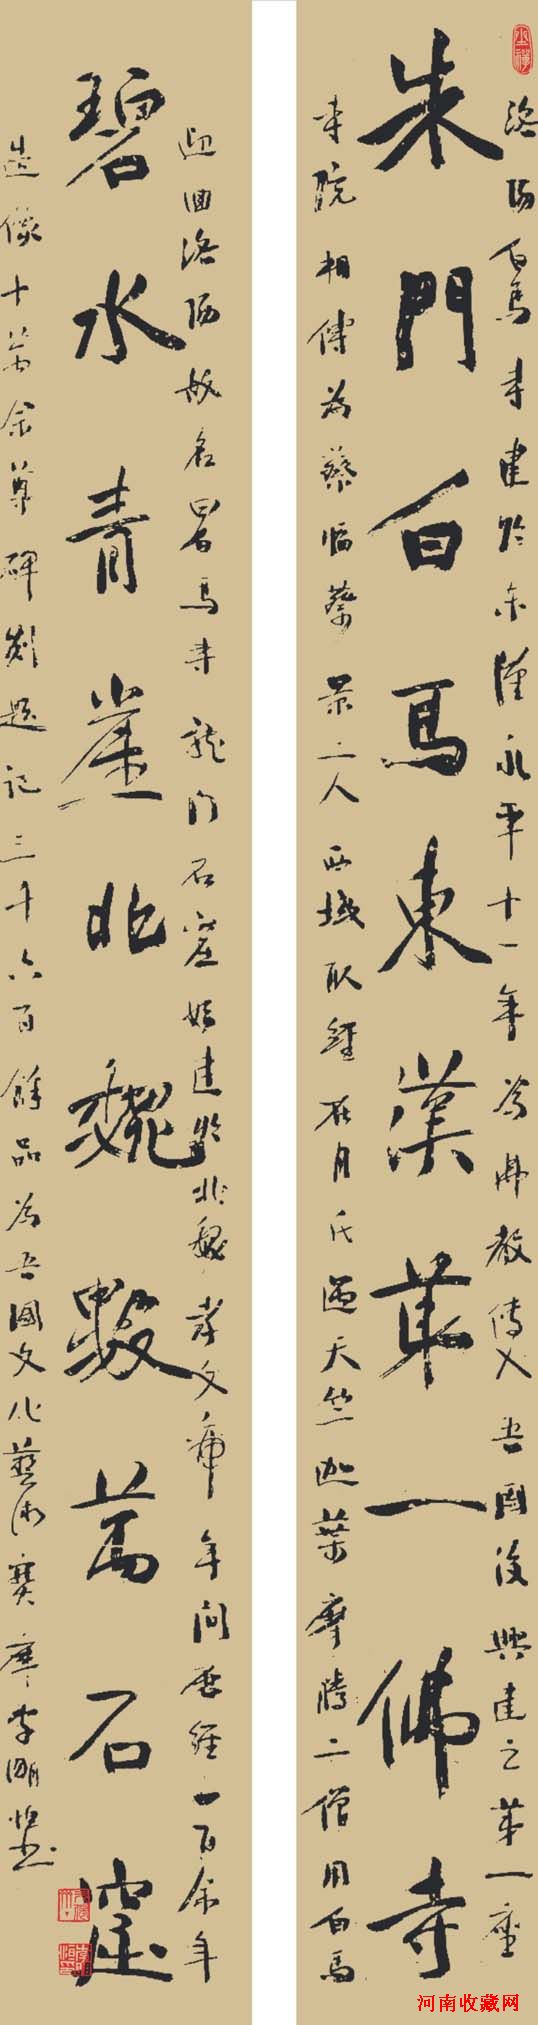 洛陽白馬寺建於東漢永平十一年為佛教傳入吾國後興建之第一座
朱門白馬東漢第一佛寺
寺院相傳為蔡蔡景二人西域取經在月氏遇天竺迦葉摩騰二僧用白馬
迎回洛陽故名曰馬寺龍門石窟始建於北魏孝文帝年间歷經一百余年
碧水青崖北魏數萬石窟
造像十萬余尊碑刻題記三千六百餘品為吾國文化藝術寶庫李明恒书
河南收藏网